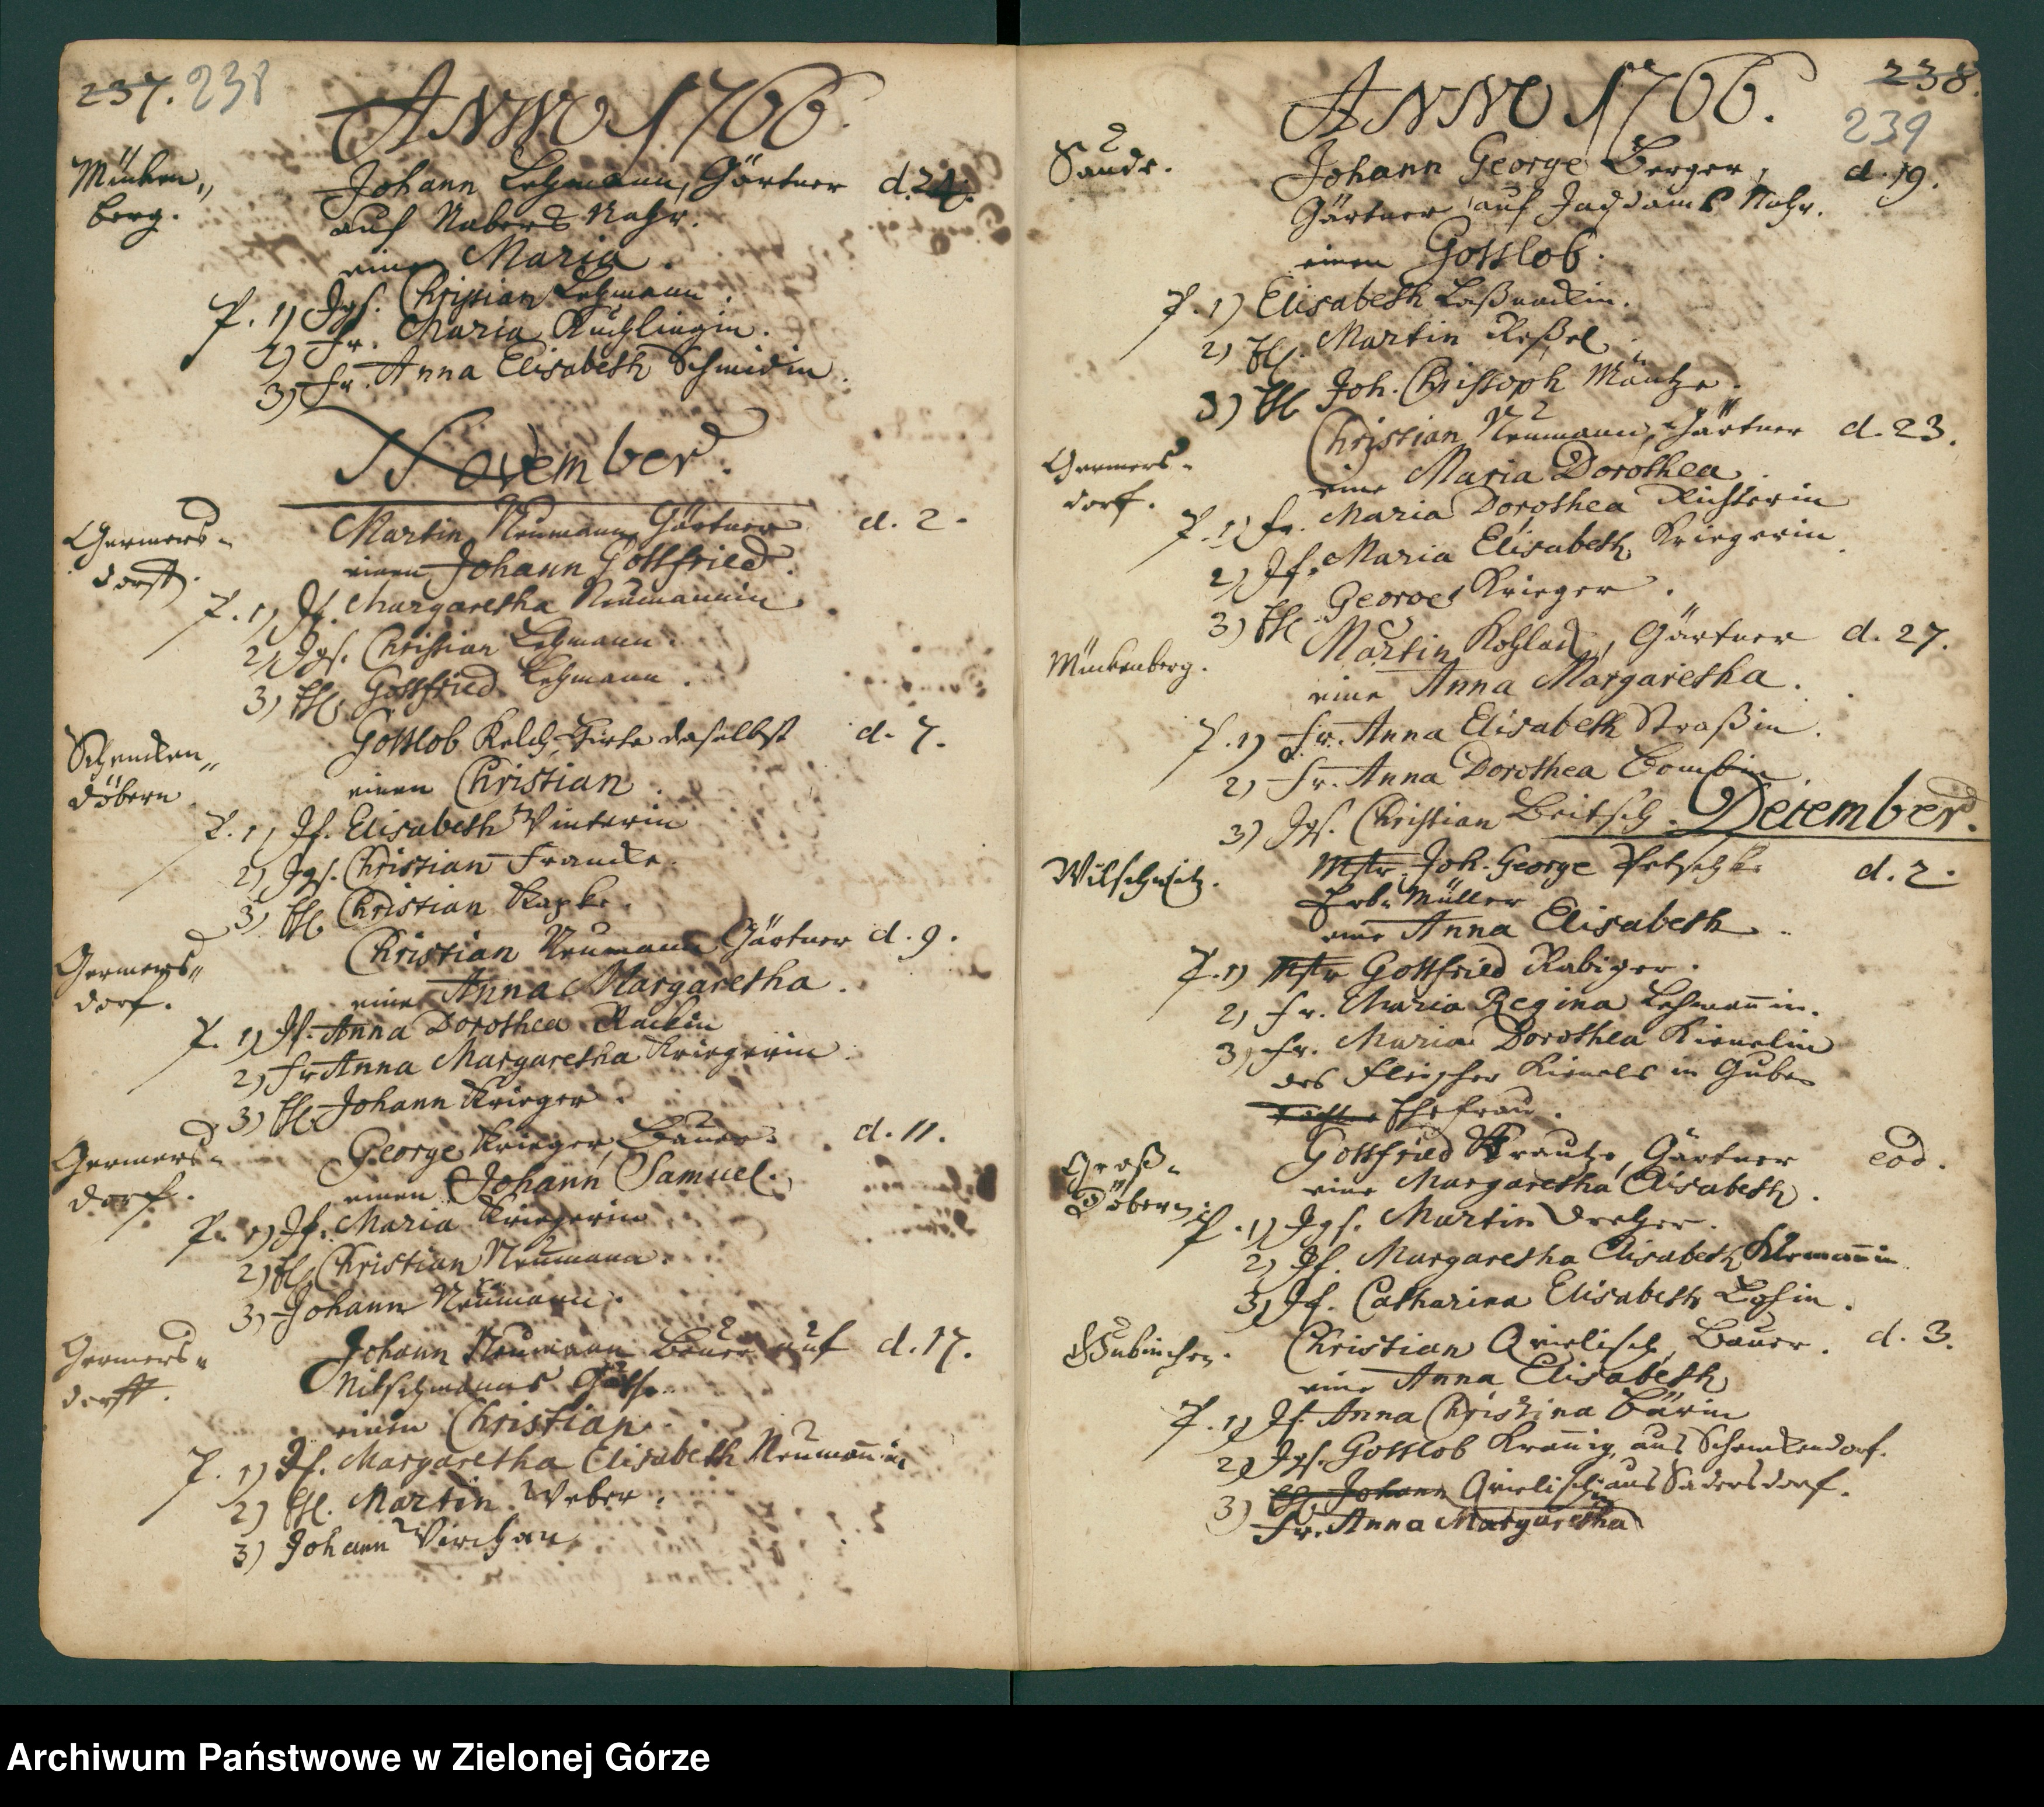 237. 238
ANNO 1766.
Mücken„
berg.
Johann Lehmann, Gärtner d. 24.
auf Nabers Nahr.
eine Maria.
P. 1) Jgs. Christian Lehmann.
2) Fr. Maria
3) Fr. Anna Elisabeth Schmidin.
November.
Germers-
dorff.
Martin Neumann Gärtner d. 2.
einen Johann Gottfried.
P. 1) Jf. Margaretha Neumannin
2) Jgs. Christian Lehmann.
3) Gottfried Lehmann.
Schencken„
döbern
Gottlob Kelch, Hirte daselbst d. 7.
einen Christian.
P. 1) Jf. Elisabeth Winterin
2) Jgs. Christian Francke.
3) Christian
Germers„
dorf.
Christian Neumann Gärtner d. 9.
eine Anna Margaretha.
P. 1) Jf. Anna Dorothea
2) Fr Anna Margaretha Kriegerin.
3) Johann Krieger.
Germers-
dorf.
George Krieger, Bauer. d. 11.
einen Johann Samuel.
P. 1) Jf. Maria Kriegerin
2) Christian Neumann.
3) Johann Neumann.
Germers„
dorff.
Johann Neumann Bauer auf d. 17.
Nitschmanns Guthe.
einen Christian.
P. 1) Jf. Margaretha Elisabeth Neuman̄in
2) Martin Weber.
3) Johann
Archiwum Państwowe w Zielonej Górze
238.
239
ANNO 1766.
Saude.
Johann George Berger, d. 19.
Gärtner auf Nahr.
einen Gottlob.
P. 1) Elisabeth
2) Martin
3) Joh. Christoph
Germers-
dorf.
Christian Neumann, Gärtner d. 23.
eine Maria Dorothea.
P. 1) Fr. Maria Dorothea Richterin
2) Jf. Maria Elisabeth Kriegerin.
3) George Krieger.
Mückenberg.
Martin Gärtner d. 27.
eine Anna Margaretha.
P. 1) Fr. Anna Elisabeth Straßin.
2) Fr. Anna Dorothea
3) Jgs. Christian Beitsch. December.
Wilschwitz.
Mstr. Joh. George d. 2.
Erb-Müller
eine Anna Elisabeth.
P. 1) Mstr Gottfried Rabiger.
2) Fr. Maria Regina Lehman̄in.
3) Fr. Maria Dorothea
des Fleischer in Guben
Ehefrau.
Groß-
Döbern.
Gottfried Krautz, Gärtner eod.
eine Margaretha Elisabeth.
P. 1) Jgs. Martin
2) Jf. Margaretha Elisabeth
3) Jf. Catharina Elisabeth
Gubinchen.
Christian Qvielisch, Bauer. d. 3.
eine Anna Elisabeth
P. 1) Jf. Anna Christina Bärin
2) Jgs. Gottlob aus Schenkendorf.
3) Johann Qvielisch, aus Sadersdorf.
Fr. Anna Margaretha